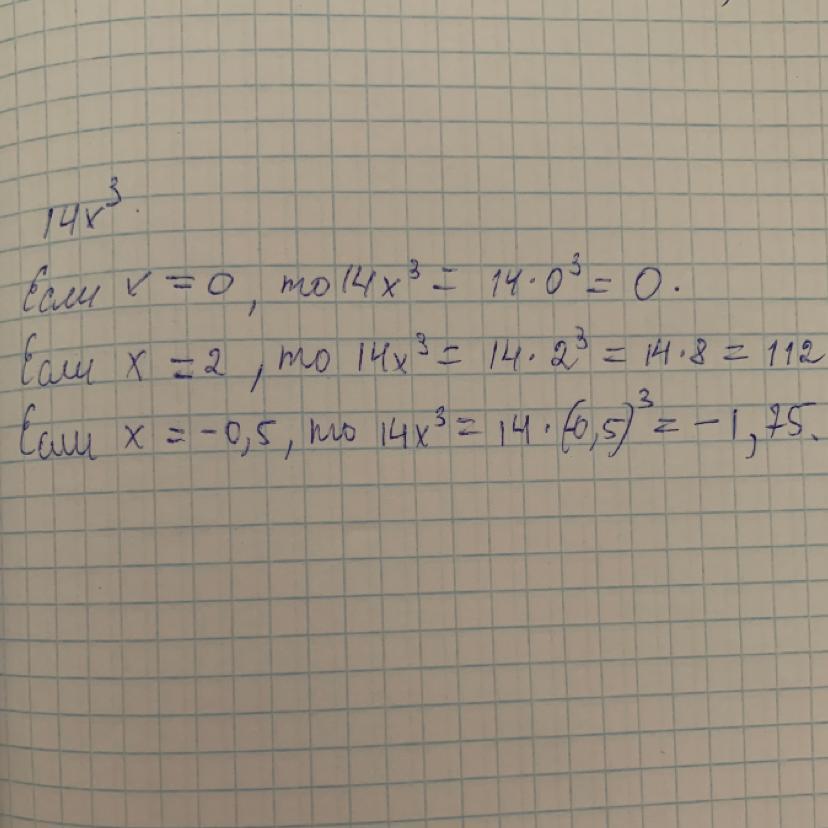 14x³
Если x = 0, то 14x³ = 14·0³ = 0.
Если x = 2, то 14x³ = 14·2³ = 14·8 = 112
Если x = -0,5, то 14x³ = 14·(-0,5)³ = -1,75.